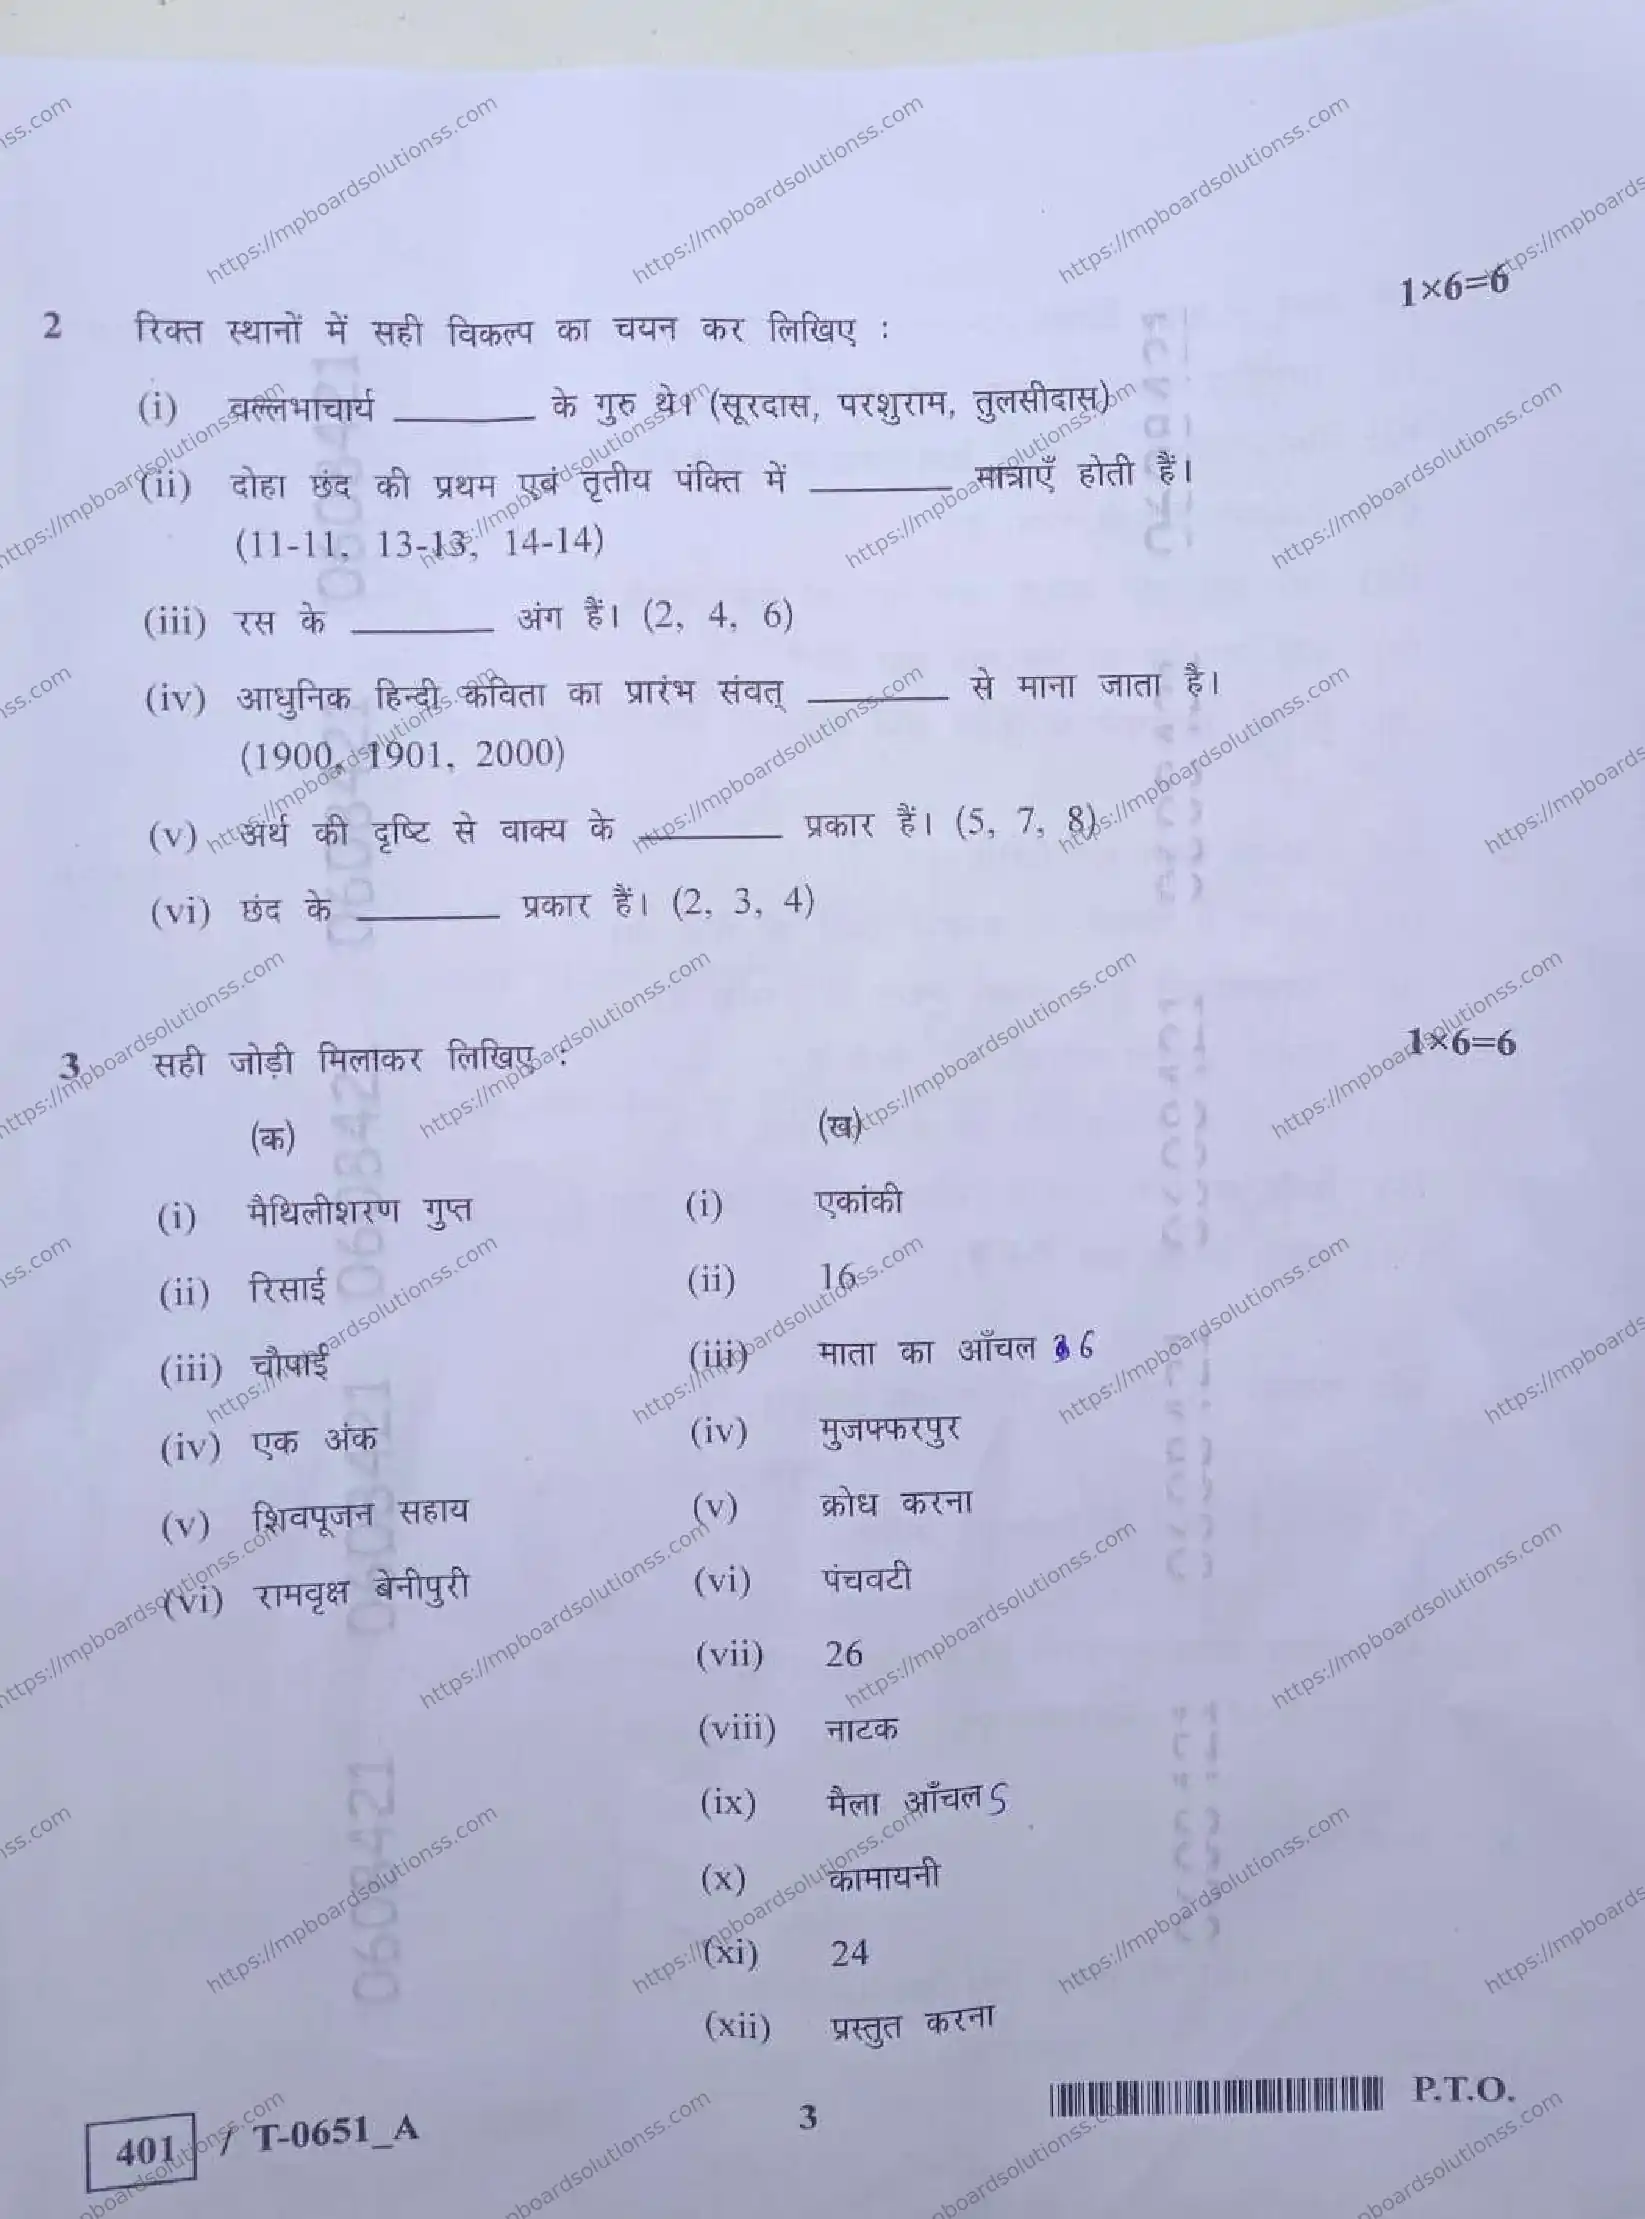 1×6=6
2 रिक्त स्थानों में सही विकल्प का चयन कर लिखिए :
(i) वल्लभाचार्य ________ के गुरु थे। (सूरदास, परशुराम, तुलसीदास)
(ii) दोहा छंद की प्रथम एवं तृतीय पंक्ति में ________ मात्राएँ होती हैं।
(11-11, 13-13, 14-14)
(iii) रस के ________ अंग हैं। (2, 4, 6)
(iv) आधुनिक हिन्दी कविता का प्रारंभ संवत् ________ से माना जाता है।
(1900, 1901, 2000)
(v) अर्थ की दृष्टि से वाक्य के ________ प्रकार हैं। (5, 7, 8)
(vi) छंद के ________ प्रकार हैं। (2, 3, 4)
3 सही जोड़ी मिलाकर लिखिए : 1×6=6
(क) (ख)
(i) मैथिलीशरण गुप्त (i) एकांकी
(ii) रिसाई (ii) 16
(iii) चौपाई (iii) माता का आँचल 6
(iv) एक अंक (iv) मुजफ्फरपुर
(v) शिवपूजन सहाय (v) क्रोध करना
(vi) रामवृक्ष बेनीपुरी (vi) पंचवटी
(vii) 26
(viii) नाटक
(ix) मैला आँचल 5
(x) कामायनी
(xi) 24
(xii) प्रस्तुत करना
401 / T-0651_A 3 P.T.O.
https://mpboardsolutionss.com
0608421